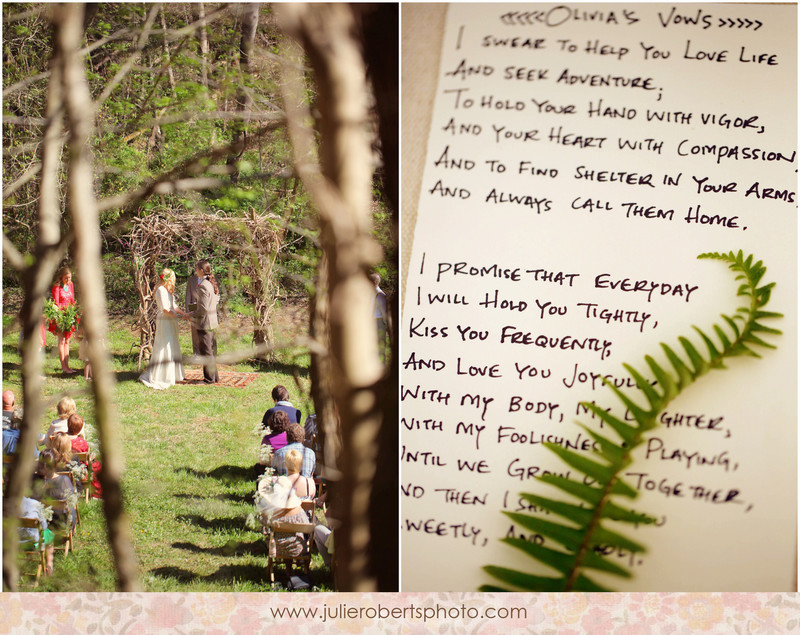 <<<<<OLIVIA'S VOWS>>>>>
I SWEAR TO HELP YOU LOVE LIFE
AND SEEK ADVENTURE;
TO HOLD YOUR HAND WITH VIGOR,
AND YOUR HEART WITH COMPASSION
AND TO FIND SHELTER IN YOUR ARMS
AND ALWAYS CALL THEM HOME.
I PROMISE THAT EVERYDAY
I WILL HOLD YOU TIGHTLY,
KISS YOU FREQUENTLY,
AND LOVE YOU JOYFULLY
WITH MY BODY, MY LAUGHTER,
WITH MY FOOLISHNESS PLAYING,
UNTIL WE GROW OLD TOGETHER,
AND THEN I YOU
SWEETLY, AND
www.julierobertsphoto.com